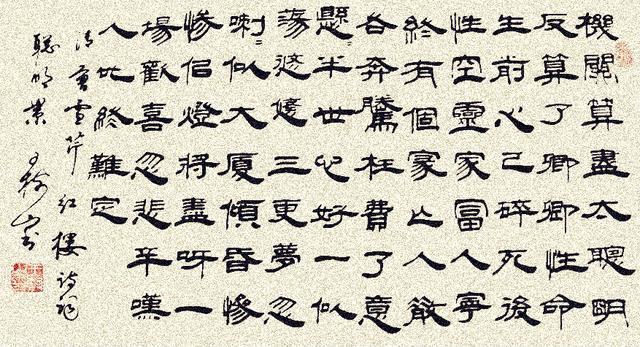 機關算盡太聰明
反算了卿卿性命
生前心已碎死後
性空靈家富人寧
終有個家亡人散
各奔騰枉費了意
懸〻半世心好一似
蕩悠悠三更夢忽
喇〻似大廈傾昏慘
慘佀燈將盡呀一
場歡喜忽悲辛嘆
人世終難定
清曹雪芹红樓詩詞
聰明累